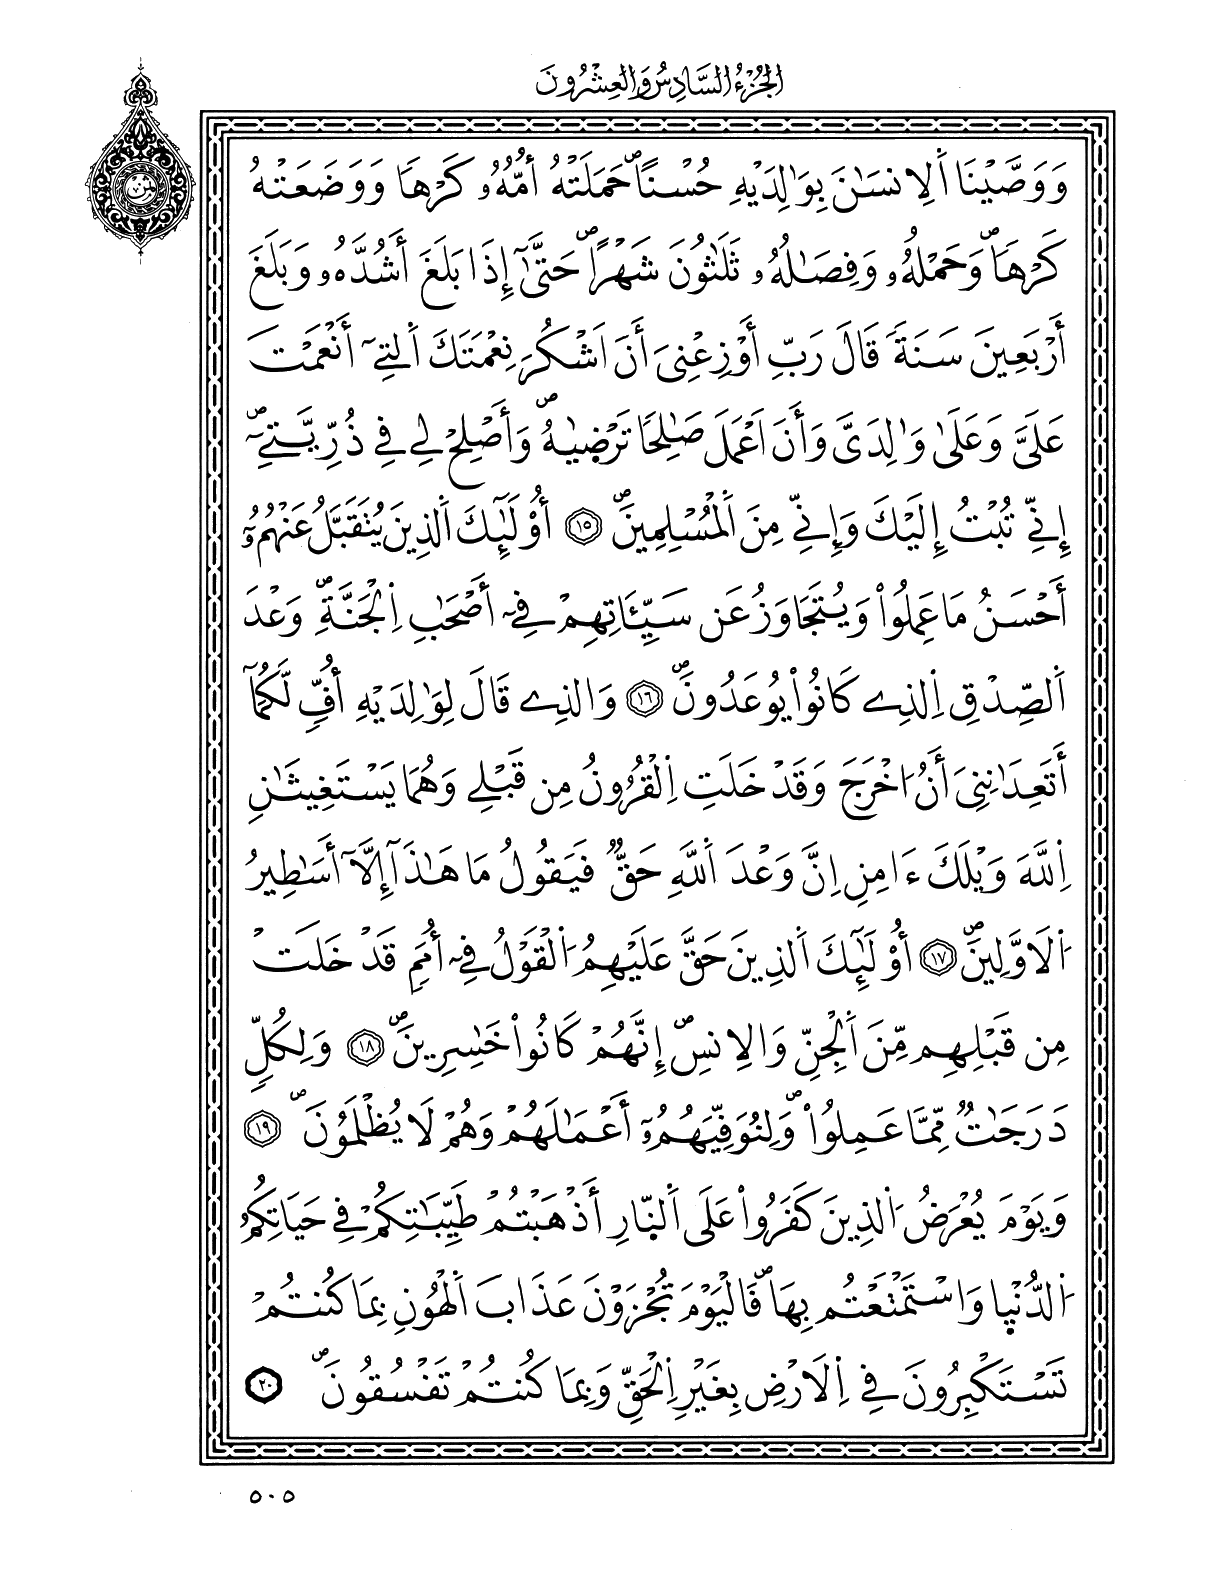 الجُزْءُ السَّادِسُ وَالعِشْرُونَ
وَوَصَّيْنَا اَ۬لِانسَٰنَ بِوَٰلِدَيْهِ حُسْناًۖ حَمَلَتْهُ أُمُّهُۥ كَرْهاٗ وَوَضَعَتْهُ
كَرْهاٗۖ وَحَمْلُهُۥ وَفِصَٰلُهُۥ ثَلَٰثُونَ شَهْراًۖ حَتَّىٰٓ إِذَا بَلَغَ أَشُدَّهُۥ وَبَلَغَ
أَرْبَعِينَ سَنَةٗ قَالَ رَبِّ أَوْزِعْنِيَ أَنَ اَشْكُرَ نِعْمَتَكَ اَ۬لتِےٓ أَنْعَمْتَ
عَلَيَّ وَعَلَىٰ وَٰلِدَيَّ وَأَنَ اَعْمَلَ صَٰلِحاٗ تَرْضَيٰهُۖ وَأَصْلِحْ لِے فِے ذُرِّيَّتِيَۖ
إِنِّے تُبْتُ إِلَيْكَ وَإِنِّے مِنَ اَ۬لْمُسْلِمِينَۖ ١٥ أُوْلَٰٓئِكَ اَ۬لذِينَ يُتَقَبَّلُ عَنْهُمُۥٓ
أَحْسَنُ مَا عَمِلُواْ وَيُتَجَاوَزُ عَن سَيِّـَٔاتِهِمْ فِےٓ أَصْحَٰبِ اِ۬لْجَنَّةِۖ وَعْدَ
اَ۬لصِّدْقِ اِ۬لذِے كَانُواْ يُوعَدُونَۖ ١٦ وَالذِے قَالَ لِوَٰلِدَيْهِ أُفّٖ لَّكُمَآ
أَتَعِدَٰنِنِيَ أَنُ ا۟خْرَجَ وَقَدْ خَلَتِ اِ۬لْقُرُونُ مِن قَبْلِے وَهُمَا يَسْتَغِيثَٰنِ
اِ۬للَّهَ وَيْلَكَ ءَامِنِ اِنَّ وَعْدَ اَ۬للَّهِ حَقّٞ فَيَقُولُ مَا هَٰذَآ إِلَّآ أَسَٰطِيرُ
اُ۬لَاوَّلِينَۖ ١٧ أُوْلَٰٓئِكَ اَ۬لذِينَ حَقَّ عَلَيْهِمُ اُ۬لْقَوْلُ فِےٓ أُمَمٖ قَدْ خَلَتْ
مِن قَبْلِهِم مِّنَ اَ۬لْجِنِّ وَالِانسِۖ إِنَّهُمْ كَانُواْ خَٰسِرِينَۖ ١٨ وَلِكُلّٖ
دَرَجَٰتٞ مِّمَّا عَمِلُواْۖ وَلِنُوَفِّيَهُمُۥٓ أَعْمَٰلَهُمْ وَهُمْ لَا يُظْلَمُونَۖ ١٩
وَيَوْمَ يُعْرَضُ اُ۬لذِينَ كَفَرُواْ عَلَى اَ۬لنّ۪ارِ أَذْهَبْتُمْ طَيِّبَٰتِكُمْ فِے حَيَاتِكُمُ
اُ۬لدُّنْي۪ا وَاسْتَمْتَعْتُم بِهَاۖ فَالْيَوْمَ تُجْزَوْنَ عَذَابَ اَ۬لْهُونِ بِمَا كُنتُمْ
تَسْتَكْبِرُونَ فِے اِ۬لَارْضِ بِغَيْرِ اِ۬لْحَقِّ وَبِمَا كُنتُمْ تَفْسُقُونَۖ ٢٠
٥٠٥